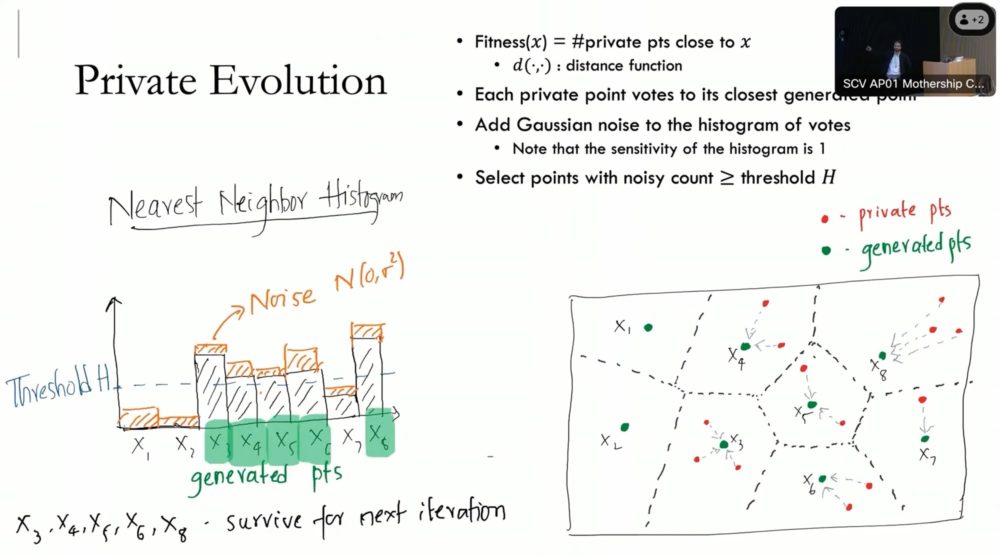 Private Evolution
• Fitness(x) = #private pts close to x
• d(·,·) : distance function
• Each private point votes to its closest generated point
• Add Gaussian noise to the histogram of votes
• Note that the sensitivity of the histogram is 1
• Select points with noisy count ≥ threshold H
+2
SCV AP01 Mothership C...
Nearest Neighbor Histogram
Noise N(0,σ²)
Threshold H
X₁ X₂ X₃ X₄ X₅ X₆ X₇ X₈
generated pts
X₃, X₄, X₅, X₆, X₈ - survive for next iteration
• - private pts
• - generated pts
X₁
X₄
X₈
X₅
X₂
X₃
X₇
X₆